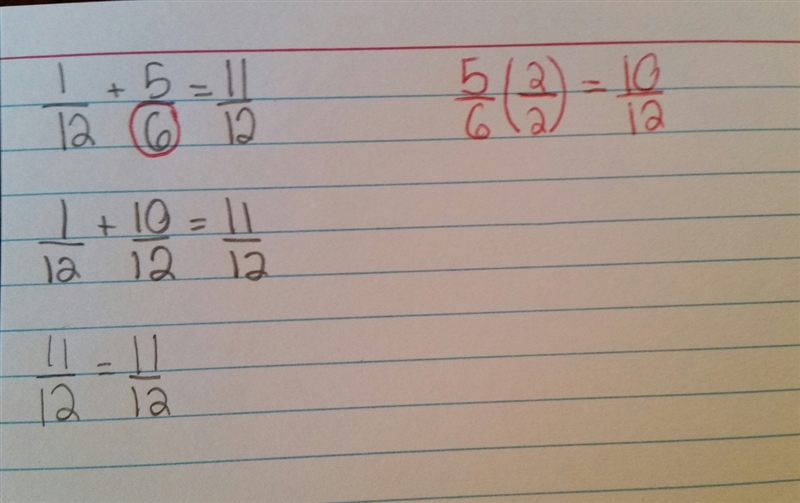 1/12 + 5/6 = 11/12
5/6 (2/2) = 10/12
1/12 + 10/12 = 11/12
11/12 = 11/12